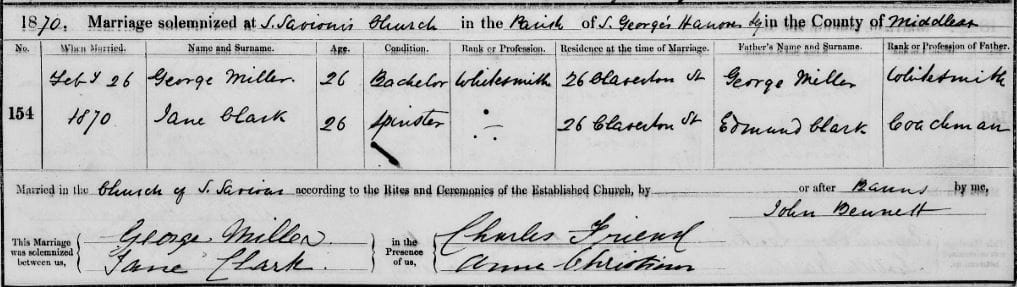 1870. Marriage solemnized at S. Saviour's Church in the Parish of S. George's Hanover Sq in the County of Middlesex
No. When Married. Name and Surname. Age. Condition. Rank or Profession. Residence at the time of Marriage. Father's Name and Surname. Rank or Profession of Father.
Feby 26 George Miller 26 Bachelor Whitesmith 26 Claverton St George Miller Whitesmith
154 1870 Jane Clark 26 Spinster 26 Claverton St Edmund Clark Coachman
Married in the Church of S. Saviour according to the Rites and Ceremonies of the Established Church, by or after Banns by me,
John Bennett
This Marriage was solemnized between us, George Miller Jane Clark in the Presence of us, Charles Friend Anne